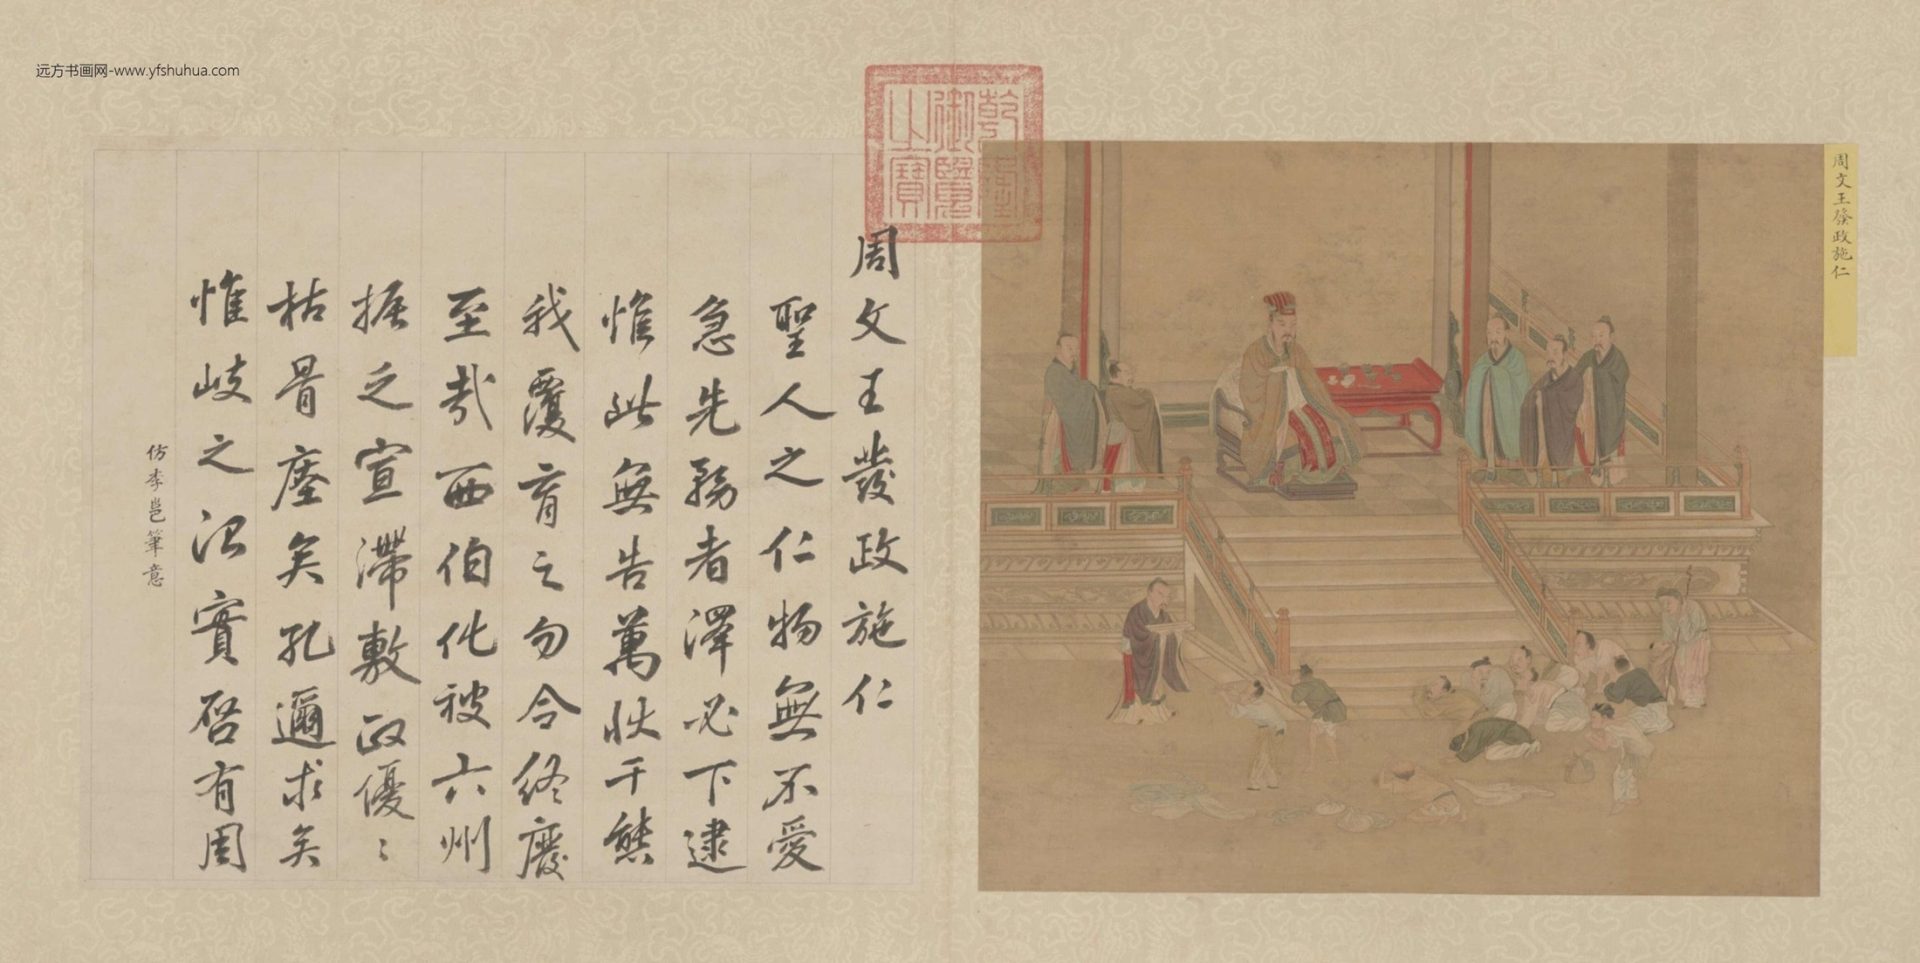 远方书画网-www.yfshuhua.com
周文王發政施仁
乾隆御覽之寶
周文王發政施仁
聖人之仁物無不愛
急先務者澤必下逮
惟此無告萬狀千態
我覆育之勿令終廢
至哉西伯化被六州
振乏宣滯敷政優〻
枯骨瘞矣孔邇求矣
惟岐之治實啓有周
仿李邕筆意